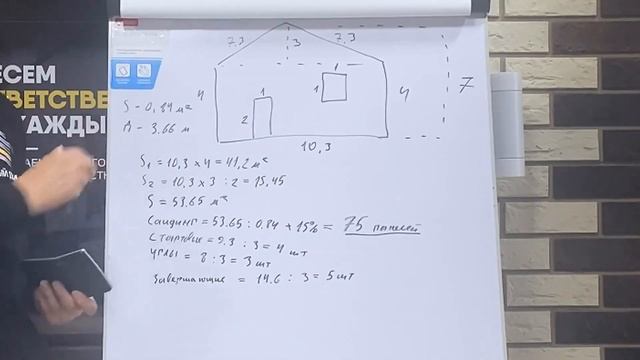 ЕСЕМ
ОТВЕТСТВЕ
КАЖДЫ
7.3
7.3
3
4
1
1
1
2
4
7
10,3
S - 0,84 м²
Д - 3.66 м
S₁ = 10,3 x 4 = 41,2 м²
S₂ = 10,3 x 3 : 2 = 15,45
S = 53.65 м²
Сайдинг = 53.65 : 0.84 + 15% = 75 панелей
Стартовые = 9.3 : 3 = 4 шт
Углы = 8 : 3 = 3 шт
Завершающие = 14.6 : 3 = 5 шт